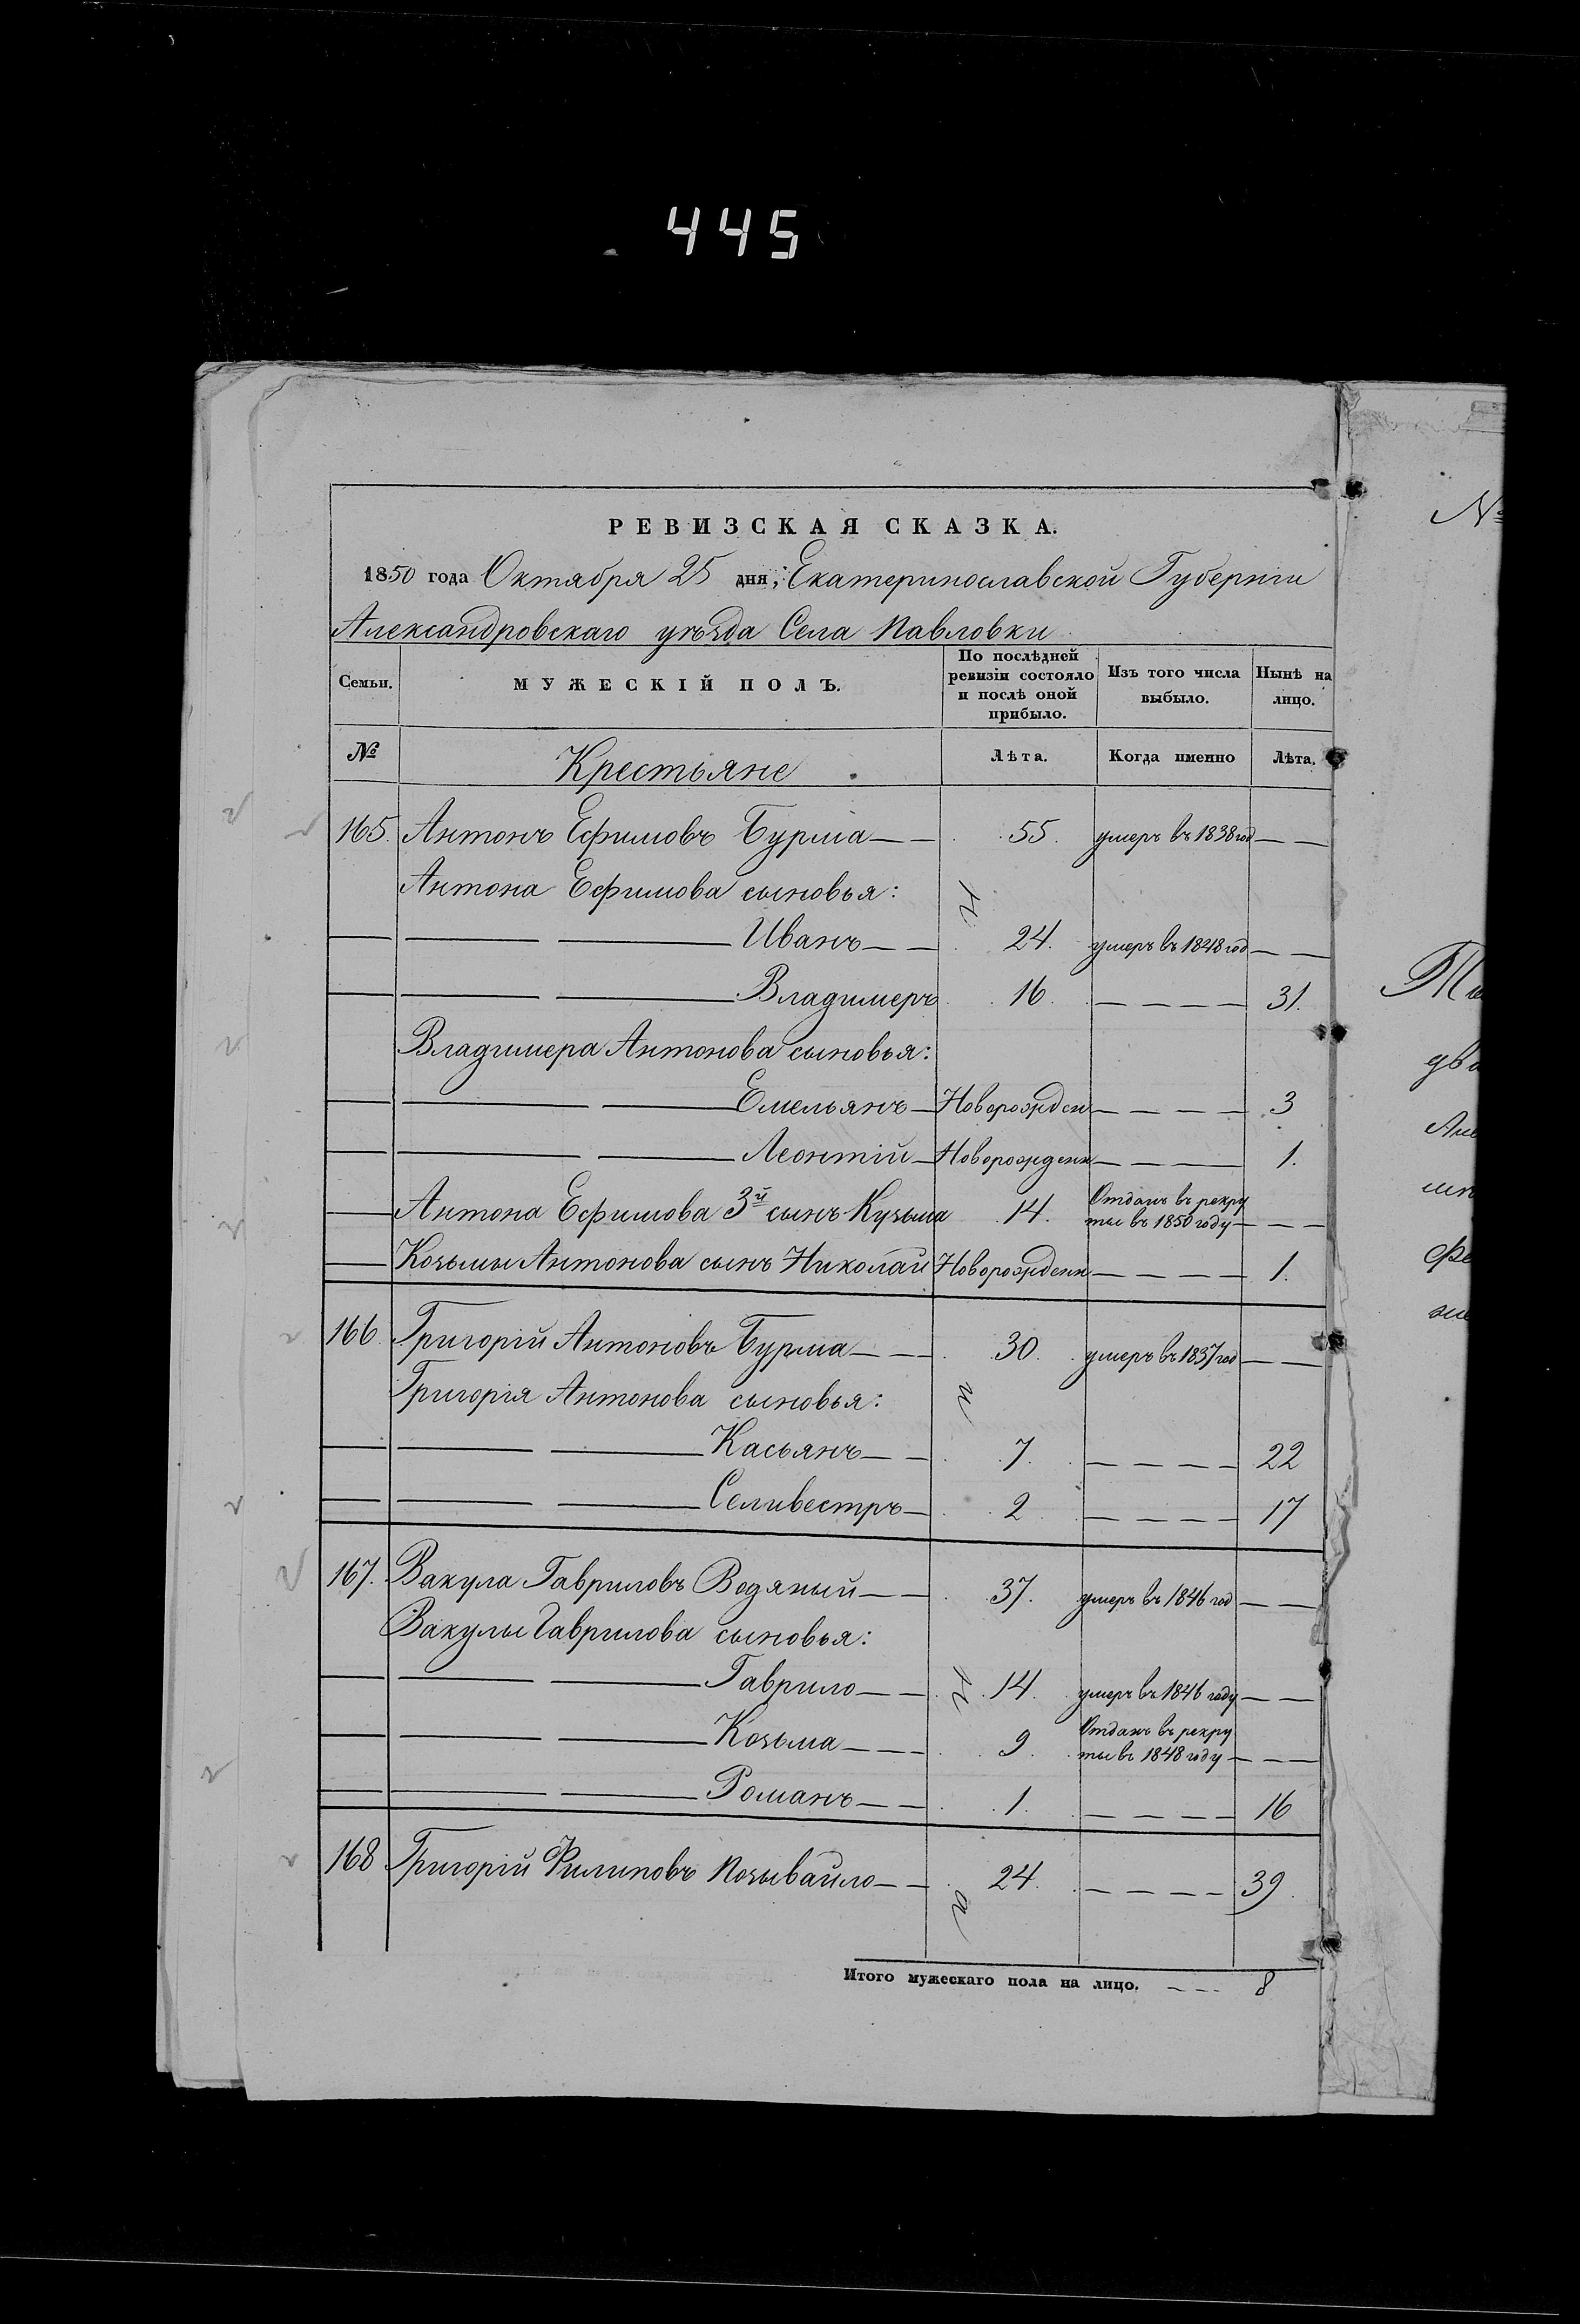 445
РЕВИЗСКАЯ СКАЗКА.
1850 года Октября 25 дня, Екатеринославской Губернии
Александровскаго уѣзда Села Павловки
Семьи. МУЖЕСКІЙ ПОЛЪ. По послѣдней ревизіи состояло и послѣ оной прибыло. Изъ того числа выбыло. Нынѣ на лицо.
№ Крестьяне Лѣта. Когда именно Лѣта.
165. Антонъ Ефимовъ Бурма 55. умеръ въ 1838 год
Антона Ефимова сыновья:
Иванъ 24. умеръ въ 1848 год
Владимеръ 16. 31.
Владимера Антонова сыновья:
Емельянъ Новорожден 3
Леонтій Новорожденн 1.
Антона Ефимова 3й сынъ Кузьма 14. Отданъ въ рекруты въ 1850 году
Козьмы Антонова сынъ Николай Новорожденн 1.
166. Григорій Антоновъ Бурма 30. умеръ въ 1837 год
Григорія Антонова сыновья:
Касьянъ 7. 22
Селивестръ 2 17
167. Вакула Гавриловъ Водяный 37. умеръ въ 1846 год
Вакулы Гаврилова сыновья:
Гаврило 14. умеръ въ 1846 году
Козьма 9. Отданъ въ рекруты въ 1848 году
Романъ 1. 16
168 Григорій Филиповъ Позывайло 24. 39.
Итого мужескаго пола на лицо. 8
№